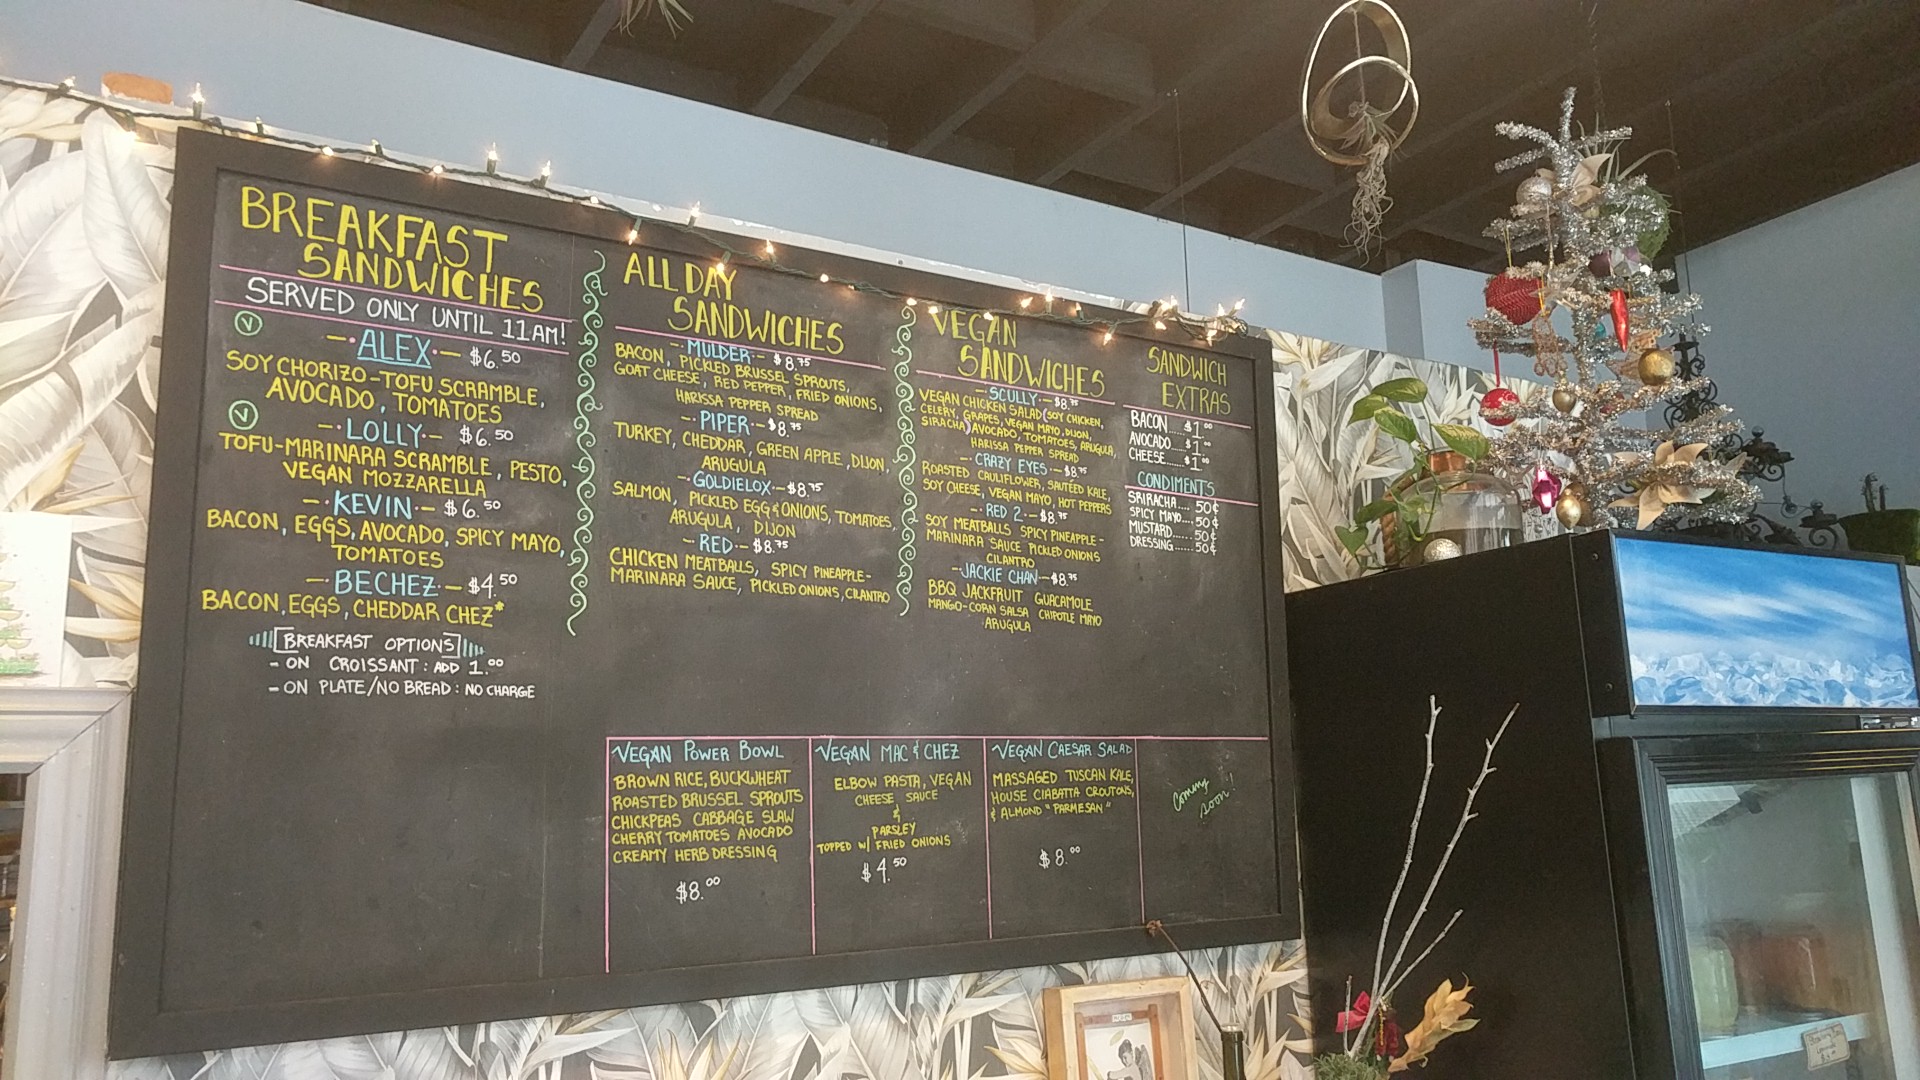 BREAKFAST
SANDWICHES
SERVED ONLY UNTIL 11AM!
V
-·ALEX·- $6.50
SOY CHORIZO-TOFU SCRAMBLE,
AVOCADO, TOMATOES
V
-·LOLLY·- $6.50
TOFU-MARINARA SCRAMBLE, PESTO,
VEGAN MOZZARELLA
-·KEVIN·- $6.50
BACON, EGGS, AVOCADO, SPICY MAYO,
TOMATOES
-·BECHEZ·- $4.50
BACON, EGGS, CHEDDAR CHEZ*
[BREAKFAST OPTIONS]
- ON CROISSANT: ADD 1.00
- ON PLATE/NO BREAD: NO CHARGE
ALL DAY
SANDWICHES
-·MULDER·- $8.75
BACON, PICKLED BRUSSEL SPROUTS,
GOAT CHEESE, RED PEPPER, FRIED ONIONS,
HARISSA PEPPER SPREAD
-·PIPER·- $8.75
TURKEY, CHEDDAR, GREEN APPLE, DIJON,
ARUGULA
-·GOLDIELOX·- $8.75
SALMON, PICKLED EGG & ONIONS, TOMATOES,
ARUGULA, DIJON
-·RED·- $8.75
CHICKEN MEATBALLS, SPICY PINEAPPLE-
MARINARA SAUCE, PICKLED ONIONS, CILANTRO
VEGAN
SANDWICHES
-·SCULLY·- $8.75
VEGAN CHICKEN SALAD (SOY CHICKEN,
CELERY, GRAPES, VEGAN MAYO, DIJON,
SIRACHA) AVOCADO, TOMATOES, ARUGULA,
HARISSA PEPPER SPREAD
-·CRAZY EYES·- $8.75
ROASTED CAULIFLOWER, SAUTÉED KALE,
SOY CHEESE, VEGAN MAYO, HOT PEPPERS
-·RED 2·- $8.75
SOY MEATBALLS SPICY PINEAPPLE-
MARINARA SAUCE PICKLED ONIONS
CILANTRO
-·JACKIE CHAN·- $8.75
BBQ JACKFRUIT GUACAMOLE
MANGO-CORN SALSA CHIPOTLE MAYO
ARUGULA
SANDWICH
EXTRAS
BACON.... $1.00
AVOCADO... $1.00
CHEESE..... $1.00
CONDIMENTS
SRIRACHA.... 50¢
SPICY MAYO.... 50¢
MUSTARD..... 50¢
DRESSING..... 50¢
VEGAN POWER BOWL
BROWN RICE, BUCKWHEAT
ROASTED BRUSSEL SPROUTS
CHICKPEAS CABBAGE SLAW
CHERRY TOMATOES AVOCADO
CREAMY HERB DRESSING
$8.00
VEGAN MAC & CHEZ
ELBOW PASTA, VEGAN
CHEESE SAUCE
&
PARSLEY
TOPPED W/ FRIED ONIONS
$4.50
VEGAN CAESAR SALAD
MASSAGED TUSCAN KALE,
HOUSE CIABATTA CROUTONS,
& ALMOND "PARMESAN"
$8.00
Coming
soon!